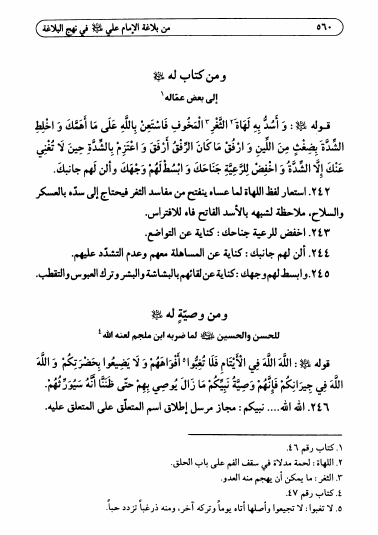 ٥٦٠ من بلاغة الإمام علي ﷺ في نهج البلاغة
ومن كتاب له ﷺ
إلى بعض عمّاله١
قوله ﷺ : وَ أَسُدُّ بِهِ لَهَاةَ٢ الثَّغْرِ٣ الْمَخُوفِ فَاسْتَعِنْ بِاللَّهِ عَلَى مَا أَهَمَّكَ وَ اخْلِطِ
الشِّدَّةَ بِضِغْثٍ مِنَ اللِّينِ وَ ارْفُقْ مَا كَانَ الرِّفْقُ أَرْفَقَ وَ اعْتَزِمْ بِالشِّدَّةِ حِينَ لَا تُغْنِي
عَنْكَ إِلَّا الشِّدَّةُ وَ اخْفِضْ لِلرَّعِيَّةِ جَنَاحَكَ وَ ابْسُطْ لَهُمْ وَجْهَكَ وألن لهم جانبك.
٢٤٢. استعار لفظ اللهاة لما عساه ينفتح من مفاسد الثغر فيحتاج إلى سدّه بالعسكر
والسلاح، ملاحظة لشبهه بالأسد الفاتح فاه للافتراس.
٢٤٣. اخفض للرعية جناحك: كناية عن التواضع.
٢٤٤. ألن لهم جانبك: كناية عن المساهلة معهم وعدم التشدّد عليهم.
٢٤٥. وابسط لهم وجهك : كناية عن لقائهم بالبشاشة والبشر وترك العبوس والتقطب.
ومن وصيّة له ﷺ
للحسن والحسين ﷺ لما ضربه ابن ملجم لعنه الله٤
قوله ﷺ : اللَّهَ اللَّهَ فِي الْأَيْتَامِ فَلَا تُغِبُّوا٥ أَفْوَاهَهُمْ وَ لَا يَضِيعُوا بِحَضْرَتِكُمْ وَ اللَّهَ
اللَّهَ فِي جِيرَانِكُمْ فَإِنَّهُمْ وَصِيَّةُ نَبِيِّكُمْ مَا زَالَ يُوصِي بِهِمْ حَتَّى ظَنَنَّا أَنَّهُ سَيُوَرِّثُهُمْ.
٢٤٦. الله الله.... نبيكم : مجاز مرسل إطلاق اسم المتعلّق على المتعلق عليه.
١. كتاب رقم ٤٦.
٢. اللهاة : لحمة مدلاة في سقف الفم على باب الحلق.
٣. الثغر : ما يمكن أن يهجم منه العدو.
٤. كتاب رقم ٤٧.
٥. لا تغبوا : لا تجيعوا وأصلها أتاه يوماً وتركه آخر، ومنه ذرغباً تزدد حباً.